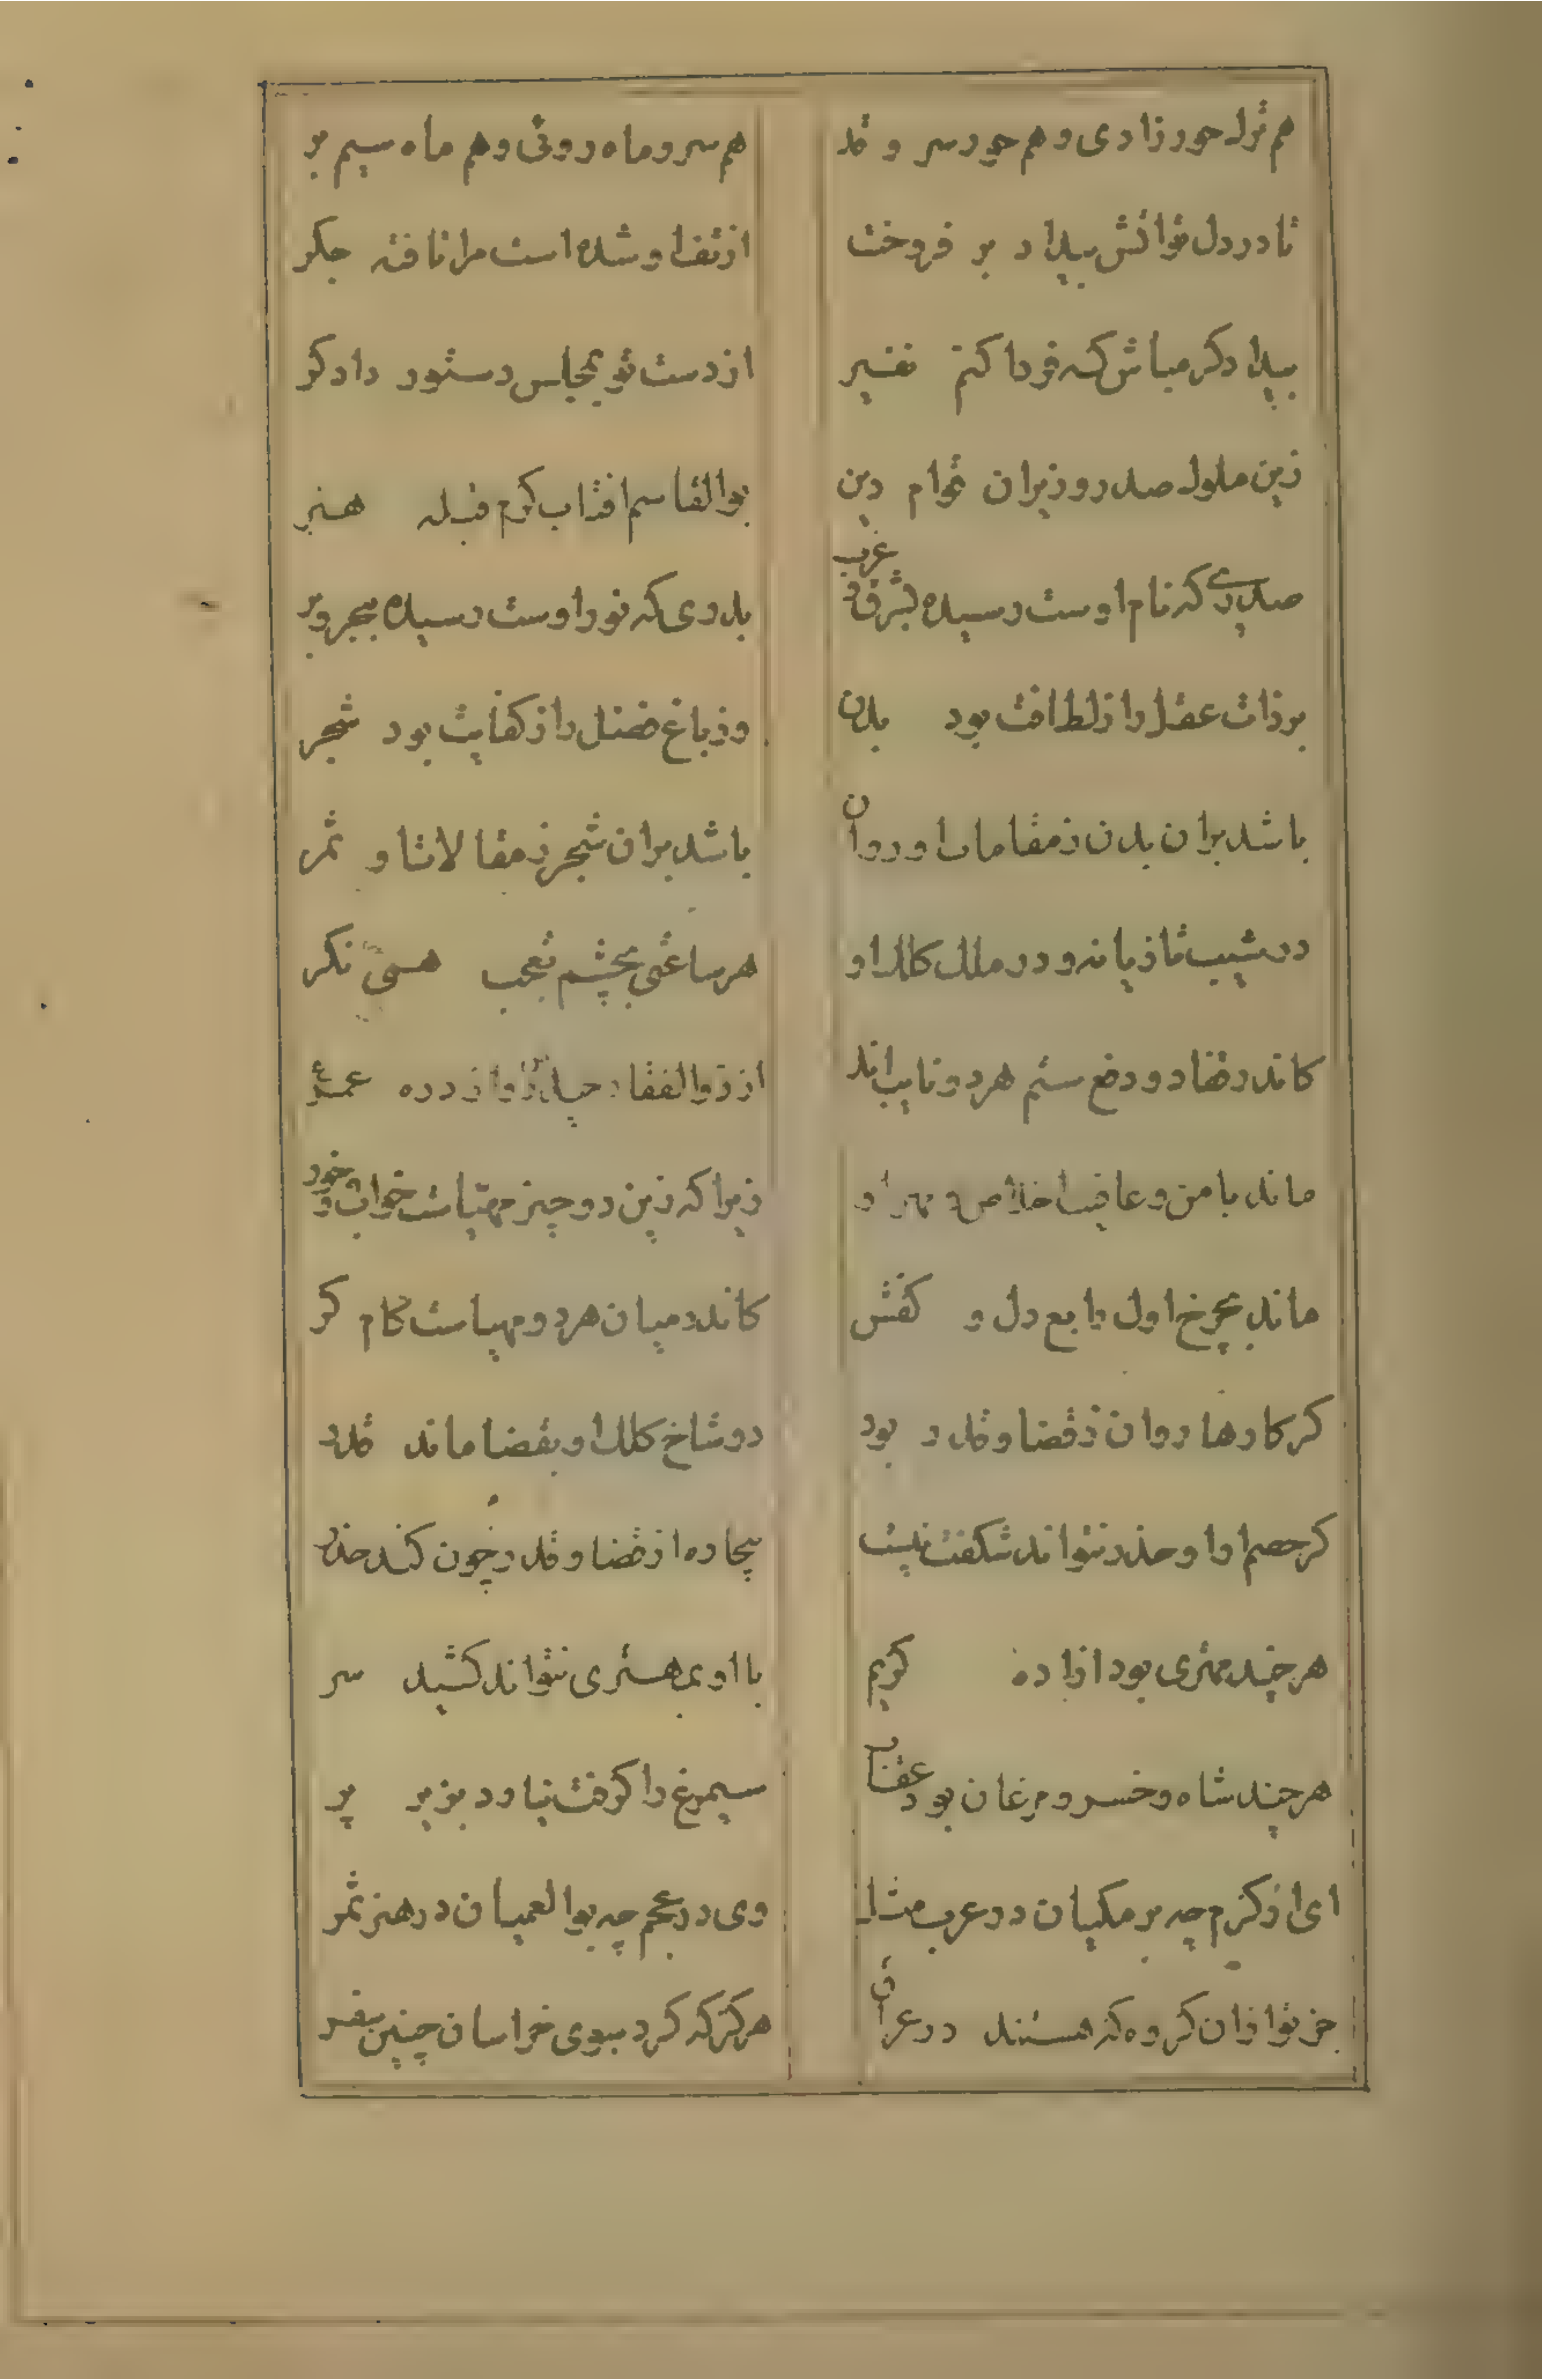 هم ترک حور زادی و هم حور سر و قد
هم سرو ماه روئی و هم ماه سیم بر
تا در دل تو آتش بیداد بر فروخت
از تف او شده است مرا تافته جکر
بیدادکر مباش که فردا کنم نفیر
از دست تو بمجلس دستور دادکر
زین ملوک صدر وزیران قوام دین
بوالقاسم افتاب کرم قبله هنر
صدری که نام اوست رسیده بشرق و غرب
بدری که نور اوست رسیده ببحر و بر
بر ذات عقل را ز لطافت بود بدن
وز باغ فضل را ز کفایت بود شجر
باشد بران بدن ز مقامات او روان
باشد بران شجر ز مقالات او ثمر
در شیب تازیانه و در ملک کلک او
هر ساعتی بچشم تعجب همی نکر
کاندر نفاد و دفع ستم هر دو نایب اند
از ذوالفقار حیدر و از دره عمر
ماند بامن و عافیت اخلاص و مهر او
زیرا که زین دو چیز مهیاست خواب و خور
ماند بچرخ اول و رابع دل و کفش
کاندر میان هر دو مهیاست کام کر
کر کارها روان ز قضا و قدر بود
دو شاخ کلک او بقضا ماند و قدر
کر خصم او ازو حذر نتواند شکفت نیست
بیچاره از قضا و قدر چون کند حذر
هر چند مهتری بود ازاده کریم
با او بمهتری نتواند کشید سر
هر چند شاه و خسرو مرغان بود عقاب
سیمرغ را کرفت نیارد بزیر پر
ای از کرم چه برمکیان در عرب مثل
وی در عجم چه بوالعمیان در هنر ثمر
جز تو ازان کروه که هستند در عراق
هرکز که کرد سوی خراسان چنین سفر